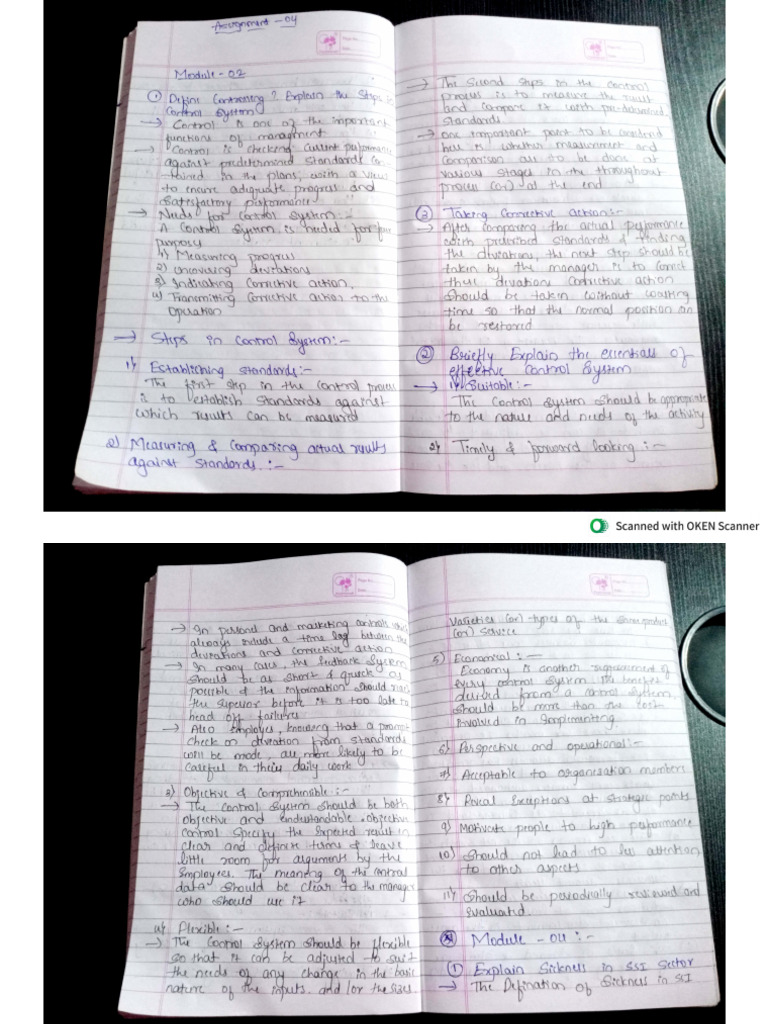 Assignment - 04
Module - 02
① Define Controlling? Explain the Steps in
Control System
→ Control is one of the important
functions of managment
→ Control is checking current performance
against predetermined standards con
tained in the plans, with a view
to ensure adequate progress and
Satisfactory performance
→ Needs for Control System :-
A Control System is needed for four
purposy
1) Measuring progress
2) Uncovering deviations
3) Indicating Corrective action,
4) Transmitting Corrective action to the
Operation
→ Steps in Control System:-
1) Establishing standards:-
The first step in the Control process
is to establish standards against
which results can be measured
2) Measuring & Comparing actual results
against standards :-
→ The Second steps in the control
process is to measure the result
and compare it with pre-determined
standards
→ One important point to be
here is whether measurement and
Comparison are to be done at
various stages in the throughout
process (or) at the end
③ Taking Corrective action:-
→ After comparing the actual performance
with prescribed standards & finding
the deviations, the next step should be
taken by the manager is to Correct
these deviations Corrective action
should be taken without wasting
time so that the normal position can
be restored
② Briefly Explain the essentials of
effective Control System
→ 1) Suitable:-
The Control System should be appropriate
to the nature and needs of the activity
2) Timely & forward looking :-
→ In personal and marketing controls
always include a time lag between the
deviations and corrective action
→ In many cases, the feedback System
should be as short & quick as
possible & the information should reach
the superior before it is too late to
head off failures
→ Also Employes, knowing that a prompt
check on deviation from standards
will be made, are more likely to be
Careful in their daily work
3) Objective & Comprehensible :-
→ The Control System should be both
objective and understandable. Objective
control specify the expected result in
clear and definite terms & leave
little room for argument by the
Employees. The meaning of the control
data should be clear to the manager
who should use it
4) Flexible :-
→ The Control System should be flexible
so that it can be adjusted to suit
the needs of any change in the basic
nature of the inputs and/or the sizes
Varieties (or) types of the same product
(or) service
5) Economical :-
Economy is another requirement of
every control system the benefits
derived from a control System,
should be more than the cost
Involved in Implementing
6) Perspective and operational:-
7) Acceptable to organisation members
8) Reveal Exceptions at strategic points
9) Motivate people to high performance
10) Should not lead to less attention
to other aspects
11) Should be periodically reviewed and
Evaluated.
Module - 04 :-
① Explain Sickness in SSI Sector
→ The Defination of Sickness in SSI
Scanned with OKEN Scanner